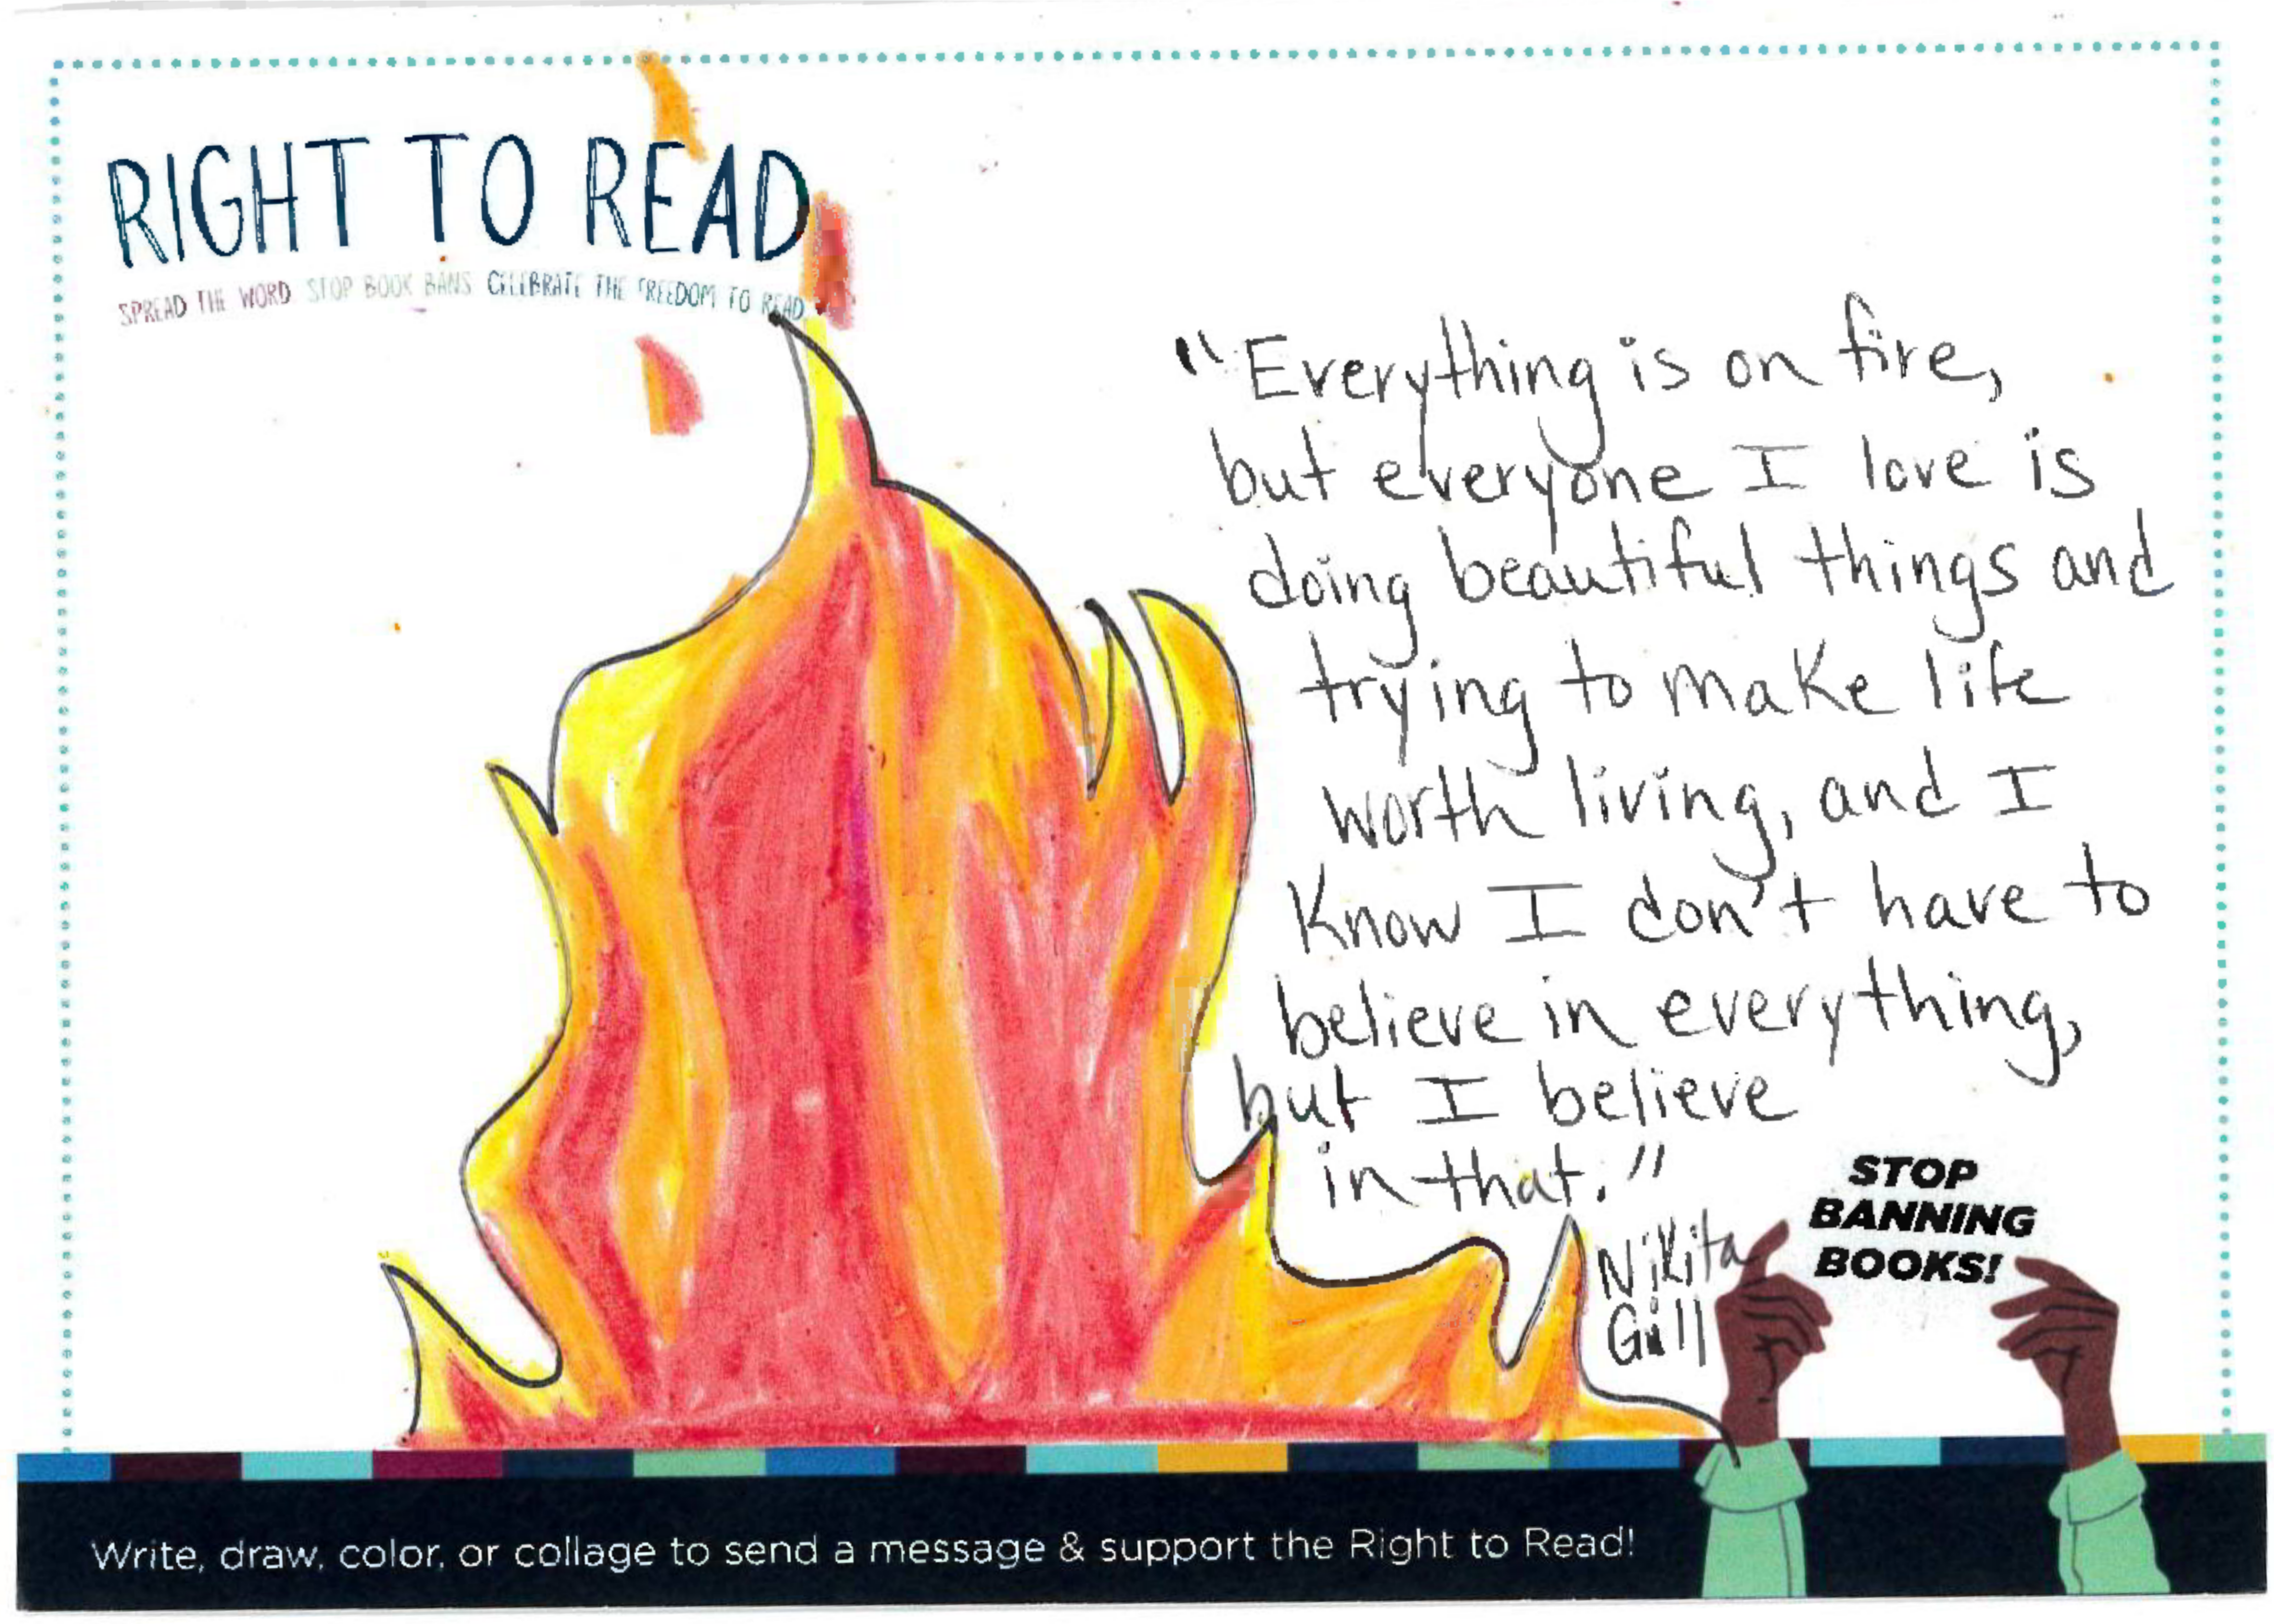 RIGHT TO READ
SPREAD THE WORD STOP BOOK BANS CELEBRATE THE FREEDOM TO READ
"Everything is on fire,
but everyone I love is
doing beautiful things and
trying to make life
worth living, and I
Know I don't have to
believe in everything,
but I believe
in that."
Nikita
Gill
STOP
BANNING
BOOKS!
Write, draw, color, or collage to send a message & support the Right to Read!